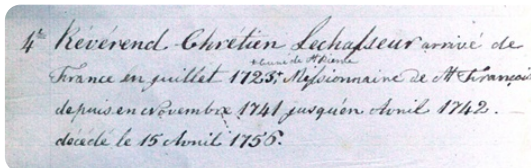 4e Révérend Chrétien Lechasseur arrivé de
+ Curé de St Pierre
France en juillet 1725, Missionnaire de St François
depuis en Novembre 1741 jusqu'en Avril 1742. —
décédé le 15 Avril 1756.